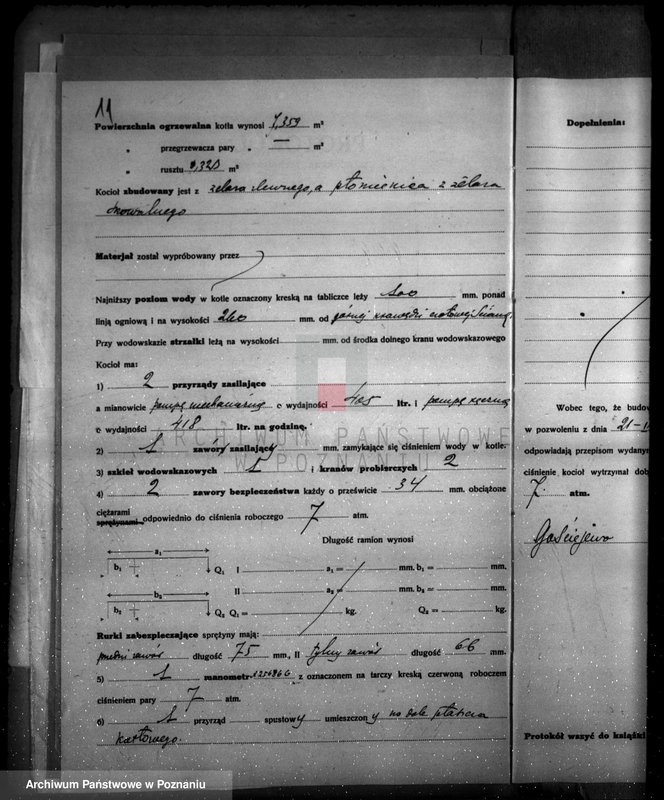 11
Powierzchnia ogrzewalna kotła wynosi 7,359 m²
„ przegrzewacza pary „ — m²
„ rusztu 0,320 m²
Kocioł zbudowany jest z żelaza lewnego, a płomienica z żelaza
Materjał został wypróbowany przez
Najniższy poziom wody w kotle oznaczony kreską na tabliczce leży 100 mm. ponad
linją ogniową i na wysokości 260 mm. od górnej krawędzi
Przy wodowskazie strzałki leżą na wysokości mm. od środka dolnego kranu wodowskazowego
Kocioł ma:
1) 2 przyrządy zasilające
a mianowicie pompę mechaniczną o wydajności 405 ltr. i pompę ręczną
o wydajności 418 ltr. na godzinę.
2) 1 zawory zasilający mm. zamykające się ciśnieniem wody w kotle.
3) szkieł wodowskazowych 1 i kranów probierczych 2
4) 2 zawory bezpieczeństwa każdy o prześwicie 34 mm. obciążone
ciężarami
sprężynami odpowiednio do ciśnienia roboczego 7 atm.
Długość ramion wynosi
a₁
b₁ Q₁ I a₁ = mm. b₁ = mm.
b₂ II a₂ = mm. b₂ = mm.
b₂ Q₂ Q₁ = kg. Q₂ = kg.
Rurki zabezpieczające sprężyny mają:
przedni zawór długość 75 mm., II tylny zawór długość 66 mm.
5) 1 manometr z oznaczonem na tarczy kreską czerwoną roboczem
ciśnieniem pary 7 atm.
6) 1 przyrząd spustowy umieszczony na dole płaszcza
kotłowego.
Dopełnienia:
Wobec tego, że budow
w pozwoleniu z dnia 21-
odpowiadają przepisom wydany
ciśnienie kocioł wytrzymał dob
7 atm.
Gościejewo
Protokół wszyć do książki
ARCHIWUM PAŃSTWOWE
W POZNANIU
Archiwum Państwowe w Poznaniu